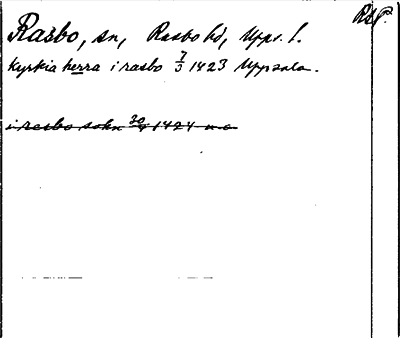 Rasbo, sn, Rasbo hd, Upps. l.
kyrkia herra i rasbo 7/3 1423 Uppsala.
i rasbo sokn 30/4 1424